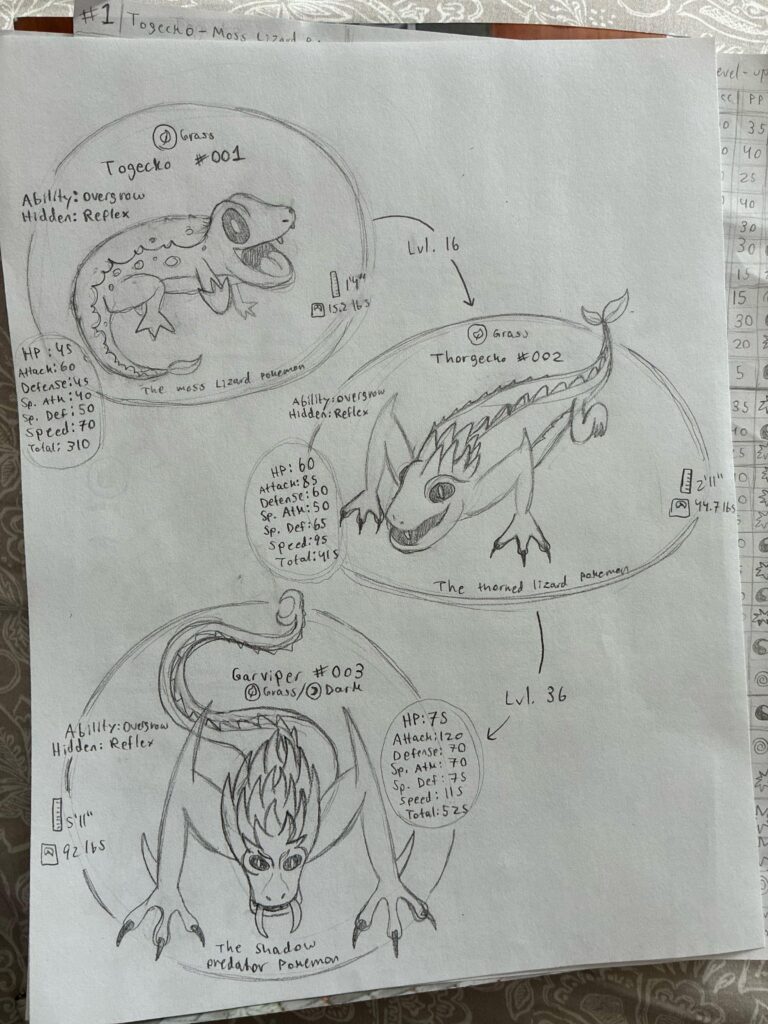 #1 Togecko - Moss Lizard
evel-up
PP
35
40
25
40
30
30
15
15
30
20
5
35
Grass
Togecko #001
Ability: overgrow
Hidden: Reflex
1'4"
15.2 lbs
HP: 45
Attack: 60
Defense: 45
Sp. Atk: 40
Sp. Def: 50
Speed: 70
Total: 310
The moss Lizard pokemon
Lvl. 16
Grass
Thorgecko #002
Ability: overgrow
Hidden: Reflex
HP: 60
Attack: 85
Defense: 60
Sp. Atk: 50
Sp. Def: 65
Speed: 95
Total: 415
2'11"
44.7 lbs
The thorned lizard pokemon
Lvl. 36
Garviper #003
Grass/Dark
Ability: Overgrow
Hidden: Reflex
5'11"
92 lbs
HP: 75
Attack: 120
Defense: 70
Sp. Atk: 70
Sp. Def: 75
Speed: 115
Total: 525
The shadow
predator Pokemon